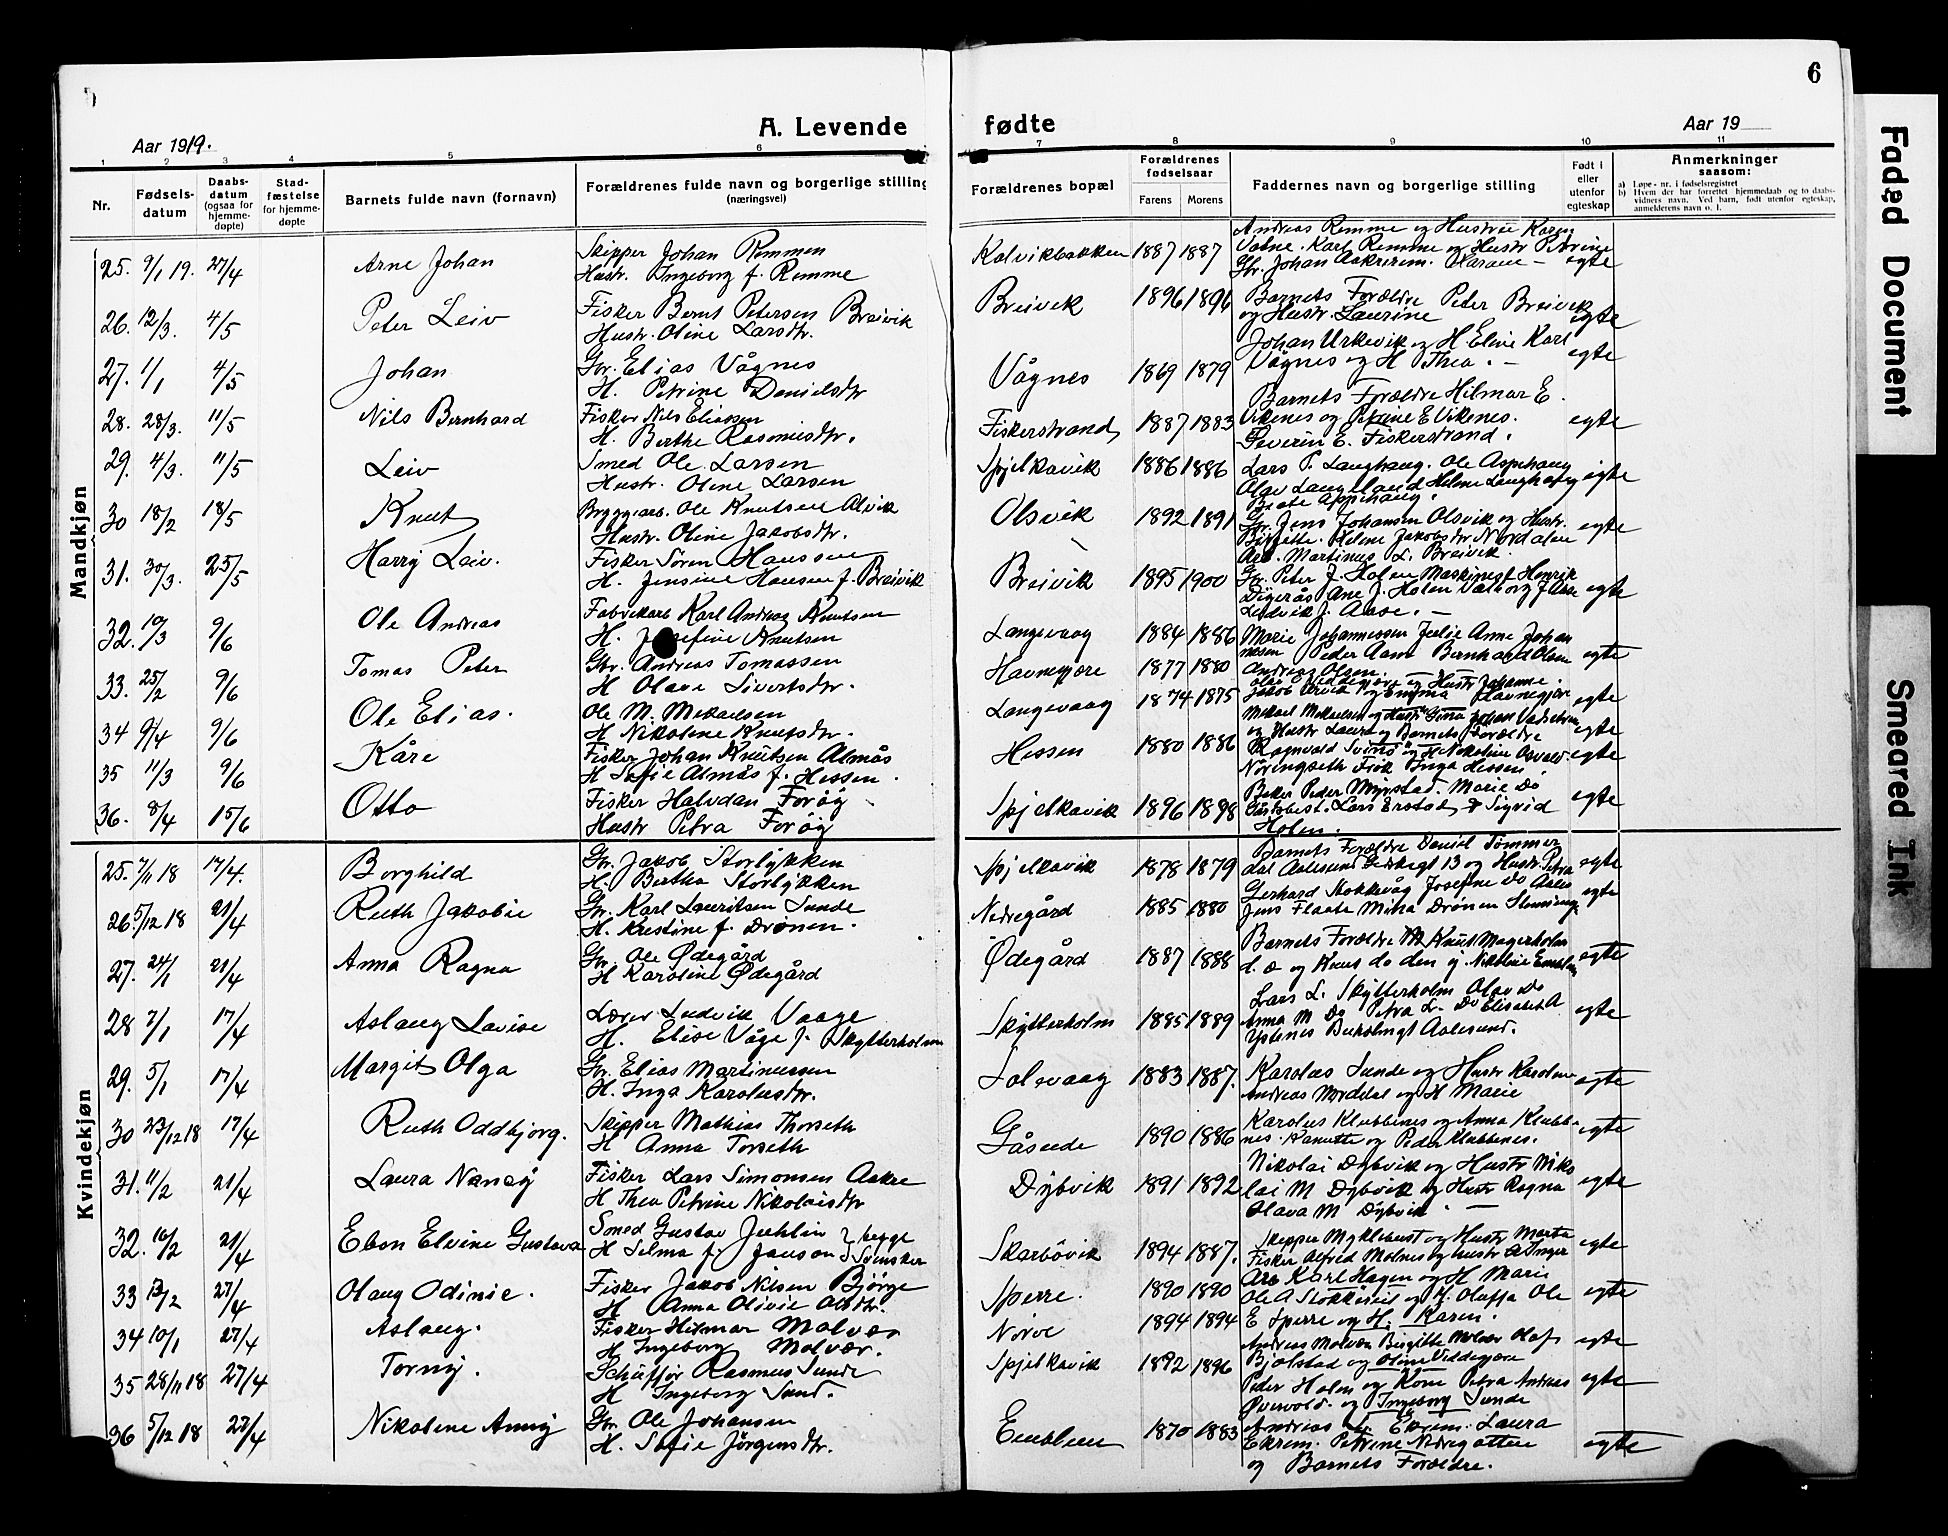 5
A. Levende
Aar 1919.
1 2 3 4 5 6
Nr.
Fødsels-
datum
Daabs-
datum
(ogsaa for
hjemme-
døpte)
Stad-
fæstelse
for hjemme-
døpte
Barnets fulde navn (fornavn)
Forældrenes fulde navn og borgerlige stilling
(næringsvei)
Mandkjøn
25. 9/1 19. 27/4 Arne Johan
Skipper Johan Remmen
Hustr. Ingeborg f. Remme
26. 12/3. 4/5 Peter Leiv
Fisker Bernt Petersen Breivik
Hustr. Oline Larsdtr.
27. 1/1 4/5 Johan
Gbr. Elias Vågnes
H. Petrine Danielsdtr
28. 28/3. 11/5 Nils Bernhard
Fisker Nils Eliassen
H. Berthe Rasmusdtr.
29. 4/3. 11/5 Leiv
Smed Ole Larsen
Hustr. Oline Larsen
30 18/2 18/5 Knut
Bryggearb. Ole Knutsen Olsvik
Hustr. Oline Jakobsdtr.
31. 30/3. 25/5 Harry Leiv.
Fisker Sören Hanssen
H. Jensine Hansen f. Breivik
32. 19/3 9/6 Ole Andreas
Fabrikarb Karl Andreas Knutsen
H. Josefine Knutsen
33. 25/2 9/6 Tomas Peter
Gbr. Andreas Tomassen
H Olave Sivertsdtr.
34 9/4 9/6 Ole Elias.
Ole M. Mekaelsen
H Nikoline Knutsdtr.
35 11/3 9/6 Kåre
Fisker Johan Knutsen Almås
H Sofie Almås f. Hessen.
36. 8/4 15/6 Otto
Fisker Halvdan Forøy
Hustr Petra Forøy
Kvindekjøn
25. 7/11 18 17/4. Borghild
Gbr. Jakob Storløkken
H. Bertha Storløkken
26. 5/12 18 21/4 Ruth Jakobie
Gbr. Karl Lauritsen Sunde
H. Kristine f. Drønen.
27. 24/1 21/4 Anna Ragna
Gbr. Ole Ødegård
H Karoline Ødegård
28 7/1 17/4 Aslaug Lovise
Lærer Ludvik Vaage
H. Elise Våge f. Skytterholm
29. 5/1 17/4 Margit Olga
Gbr. Elias Martinussen
H. Inga Karolusdtr.
30 23/12 18 17/4 Ruth Oddbjorg.
Skipper Mathias Thorseth
H Anna Torseth
31. 11/2 21/4 Laura Nancy
Fisker Lars Simonsen Aakre
H Thea Petrine Nikolaisdtr
32. 16/2 21/4 Ebon Elvine Gustava
Smed Gustav Juhlin } begge
H Selma f. Janson } Svensker
33 13/2 27/4 Olaug Odinie.
Fisker Jakob Nilsen Bjørge
H Anna Olivie Olsdtr.
34 10/1 27/4 Aslaug.
Fisker Hilmar Molvær
H Ingeborg Molvær.
35 28/11 18 27/4 Torny.
Schuffør Rasmus Sunde
H Ingeborg Sund.
36 5/12 18 27/4 Nikoline Anny
Gbr. Ole Johansen
H. Sofie Jörgensdtr.
6
fødte
Aar 19
7 8 9 10 11
Forældrenes bopæl
Forældrenes
fødselsaar
Farens Morens
Faddernes navn og borgerlige stilling
Født i
eller
utenfor
egteskap
Anmerkninger
saasom:
a) Løpe-nr. i fødselsregistret
b) Hvem der har forrettet hjemmedaab og to daabs-
vidners navn. Ved barn, født utenfor egteskap,
anmelderens navn o. l.
Kolvikbakken 1887 1887 egte
Andreas Remme og Hustru Karen
Karl Remme og Hustr Petrine
Gbr. Johan
Breivik 1896 1896 egte
Barnets Forældre Peter Breivik
og Hustr. Laurine
Vågnes 1869 1879 egte
Johan Urkevik og H Eline Karl
Vågnes og H Thea. —
Fiskerstrand 1887 1883 egte
Barnets Forældre Hilmar E.
Vikenes og Petrine E Vikenes.
Severin E. Fiskerstrand.
Spjelkavik 1886 1886 egte
Lars P. Langhaug. Ole Aspehaug
Olav Langeland Helene Langhaug
Olsvik 1892 1891 egte
Gbr. Jens Johansen Olsvik og Hustr.
Birgitte. Helene Jakobsdtr Nordalen
Arb. Martinus L. Breivik.
Breivik 1895 1900 egte
Gbr. Peter J. Holen Maskinist Henrik
Digerås Ane J. Holen Valborg J Aase
Ludvik J. Aase. —
Langevaag 1884 1886 egte
Marie Johannessen Julie Anne Johan
nesen Peder Aam Bernhard Olsen
Andreas Olsen.
Havnegjære 1877 1880 egte
Langevaag 1874 1875 egte
Mekael Mekaelsen og Hustr Gina Johan
og Hustr Laura og Barnets Forældre
Hessen 1880 1886 egte
Ragnvald Svinø og H Nikoline Osvald
Nöringseth Erik Inga Hessen.
Spjelkavik 1896 1898 egte
Baker Peder Myrstad. Marie Do
Gårdsbest. Lars Erstad & Sigrid
Holen.
Spjelkavik 1878 1879 egte
Barnets Forældre Daniel Tømmer
dal Aalesund 13 og Hustr. Petra
Nedregård 1885 1880 egte
Gerhard Stokkvåg Josefine Do Aales
Jens Flaate Mina Drønen
Ødegård 1887 1888 egte
Barnets Forældre Knut Magerholm
d. æ og Knut do den y. Nikoline Emblem
Skytterholm 1885 1889 egte
Lars L. Skytterholm Olav Do
Anna M Do Petra L. Do Elisabet A
Ystenes Aalesund.
Solevaag 1883 1887. egte
Karolus Sunde og Hustr Karoline
Andreas Myrdal og H Marie
Gåseide 1890 1886 egte
Karolus Klubbenes og Anna Klubb-
nes. Kanutte og Peder Klubbenes.
Dybvik 1891 1892 egte
Nikolai Dybvik og Hustr Niko
lai M Dybvik og Hustr Ragna
Olava M Dybvik. —
Skarbövik 1894 1887. egte
Skipper Myklebust og Hustr Marta
Fisker Alfred Molnes og hustr Inger
Sperre. 1890 1890 egte
Arb Karl Hagen og H Marie
Ole A Stokkereit og H. Olafia Ole
Nörve 1894 1894 egte
E Sperre og H. Karen.
Andreas Molvær Birgitte Molvær Olaf
Spjelkavik 1892 1896 egte
Bjolstad og Oline Viddegjære
Peder Holen og Kone Petra Andreas
Övervold. og Ingeborg Sunde
Emblem 1870 1883 egte
Andreas Ekrem. Laura
Ekrem. Petrine Nedregotten
og Barnets Forældre.
Faded Document
Smeared Ink